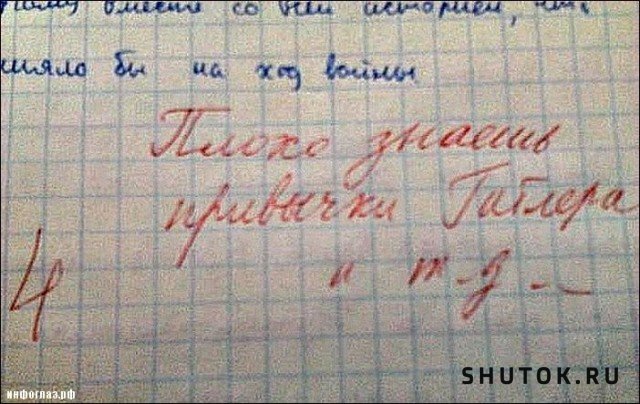 вместе со всей историей,
бы на ход войны
Плохо знаешь
привычки Гитлера
и т-д-
4
SHUTOK.RU
инфоглаз.рф